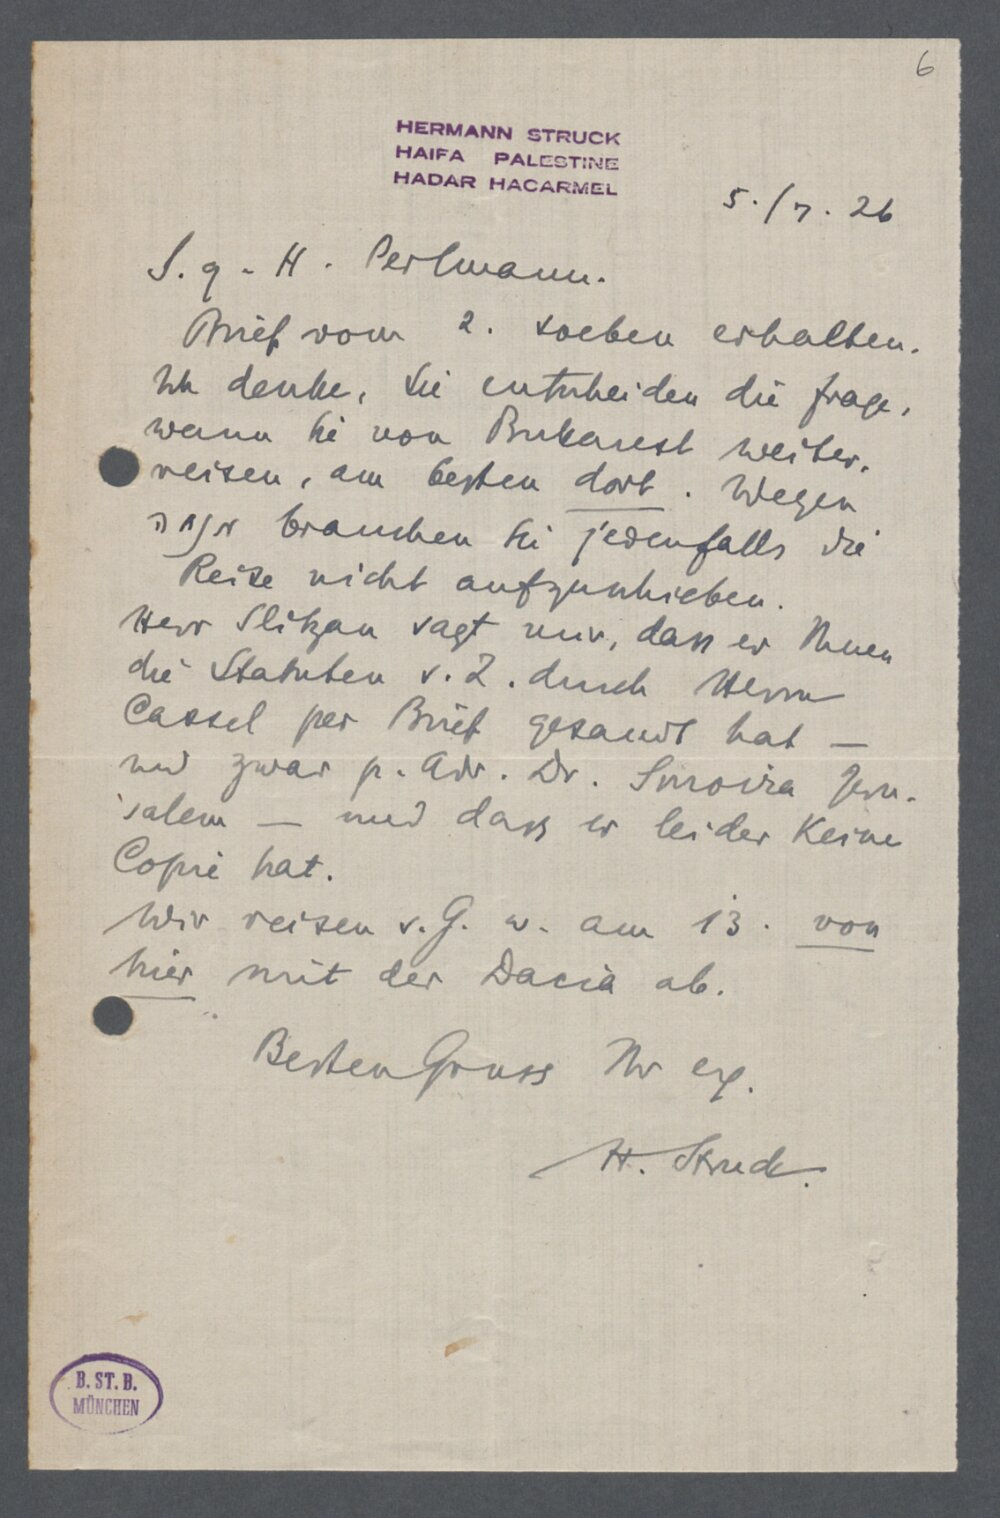 6
HERMANN STRUCK
HAIFA PALESTINE
HADAR HACARMEL
5./7. 26
S. g. H. Perlmann.
Brief vom 2. soeben erhalten.
Ich denke, Sie entscheiden die Frage,
wann Sie von Bukarest weiter-
reisen, am besten dort. Wegen
brauchen Sie jedenfalls die
Reise nicht aufzuschieben.
Herr Slikzan sagt mir, dass er Ihnen
die Statuten v. Z. durch Herrn
Cassel per Brief gesandt hat —
und zwar p. Adr. Dr. Smoira Jeru-
salem — und dass er leider keine
Copie hat.
Wir reisen s. G. w. am 13. von
hier mit der Dacia ab.
Besten Gruss Ihr erg.
H. Struck.
B. ST. B.
MÜNCHEN